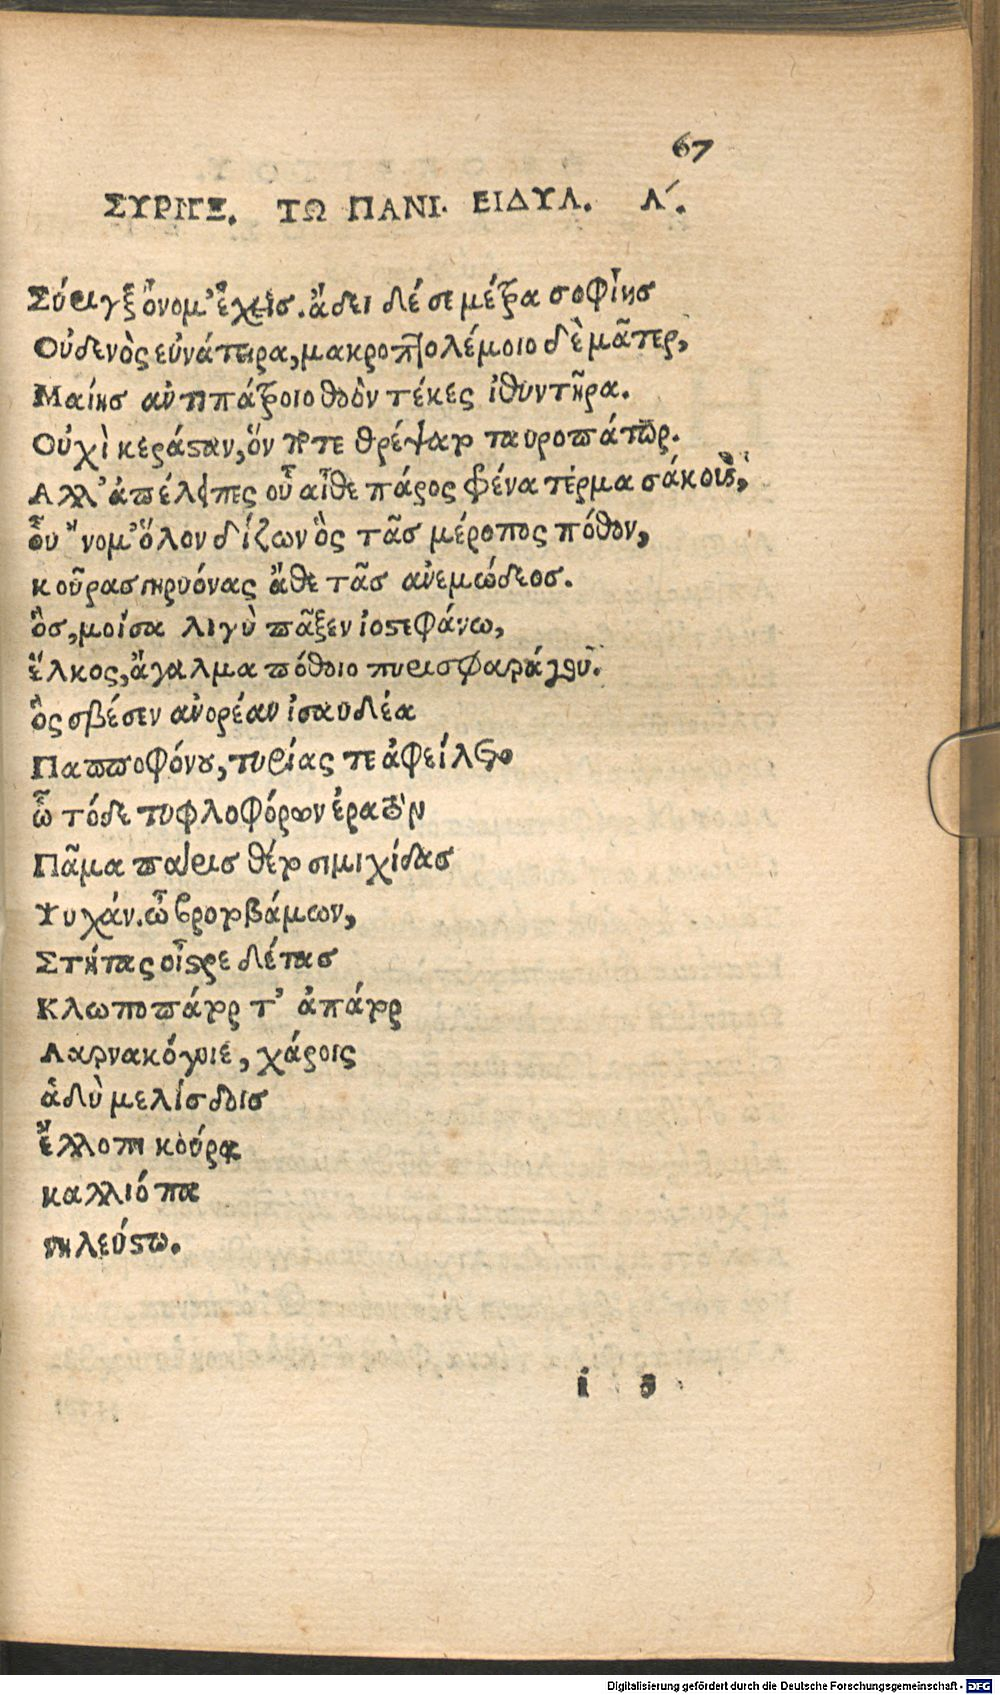 67
ΣΥΡΙΓΞ. ΤΩ ΠΑΝΙ. ΕΙΔΥΛ. Λ´.
Σύριγξ ὄνομ' ἔχεις. ἄδει δέ σε μέτρα σοφίης
Οὐδενὸς εὐνάτειρα, μακροπτολέμοιο δὲ μᾶτερ,
Μαίης αντιπάτροιο θοὸν τέκες ἰθυντῆρα.
Οὐχὶ κεράσαν, ὅν ποτε θρέψατο ταυροπάτωρ.
Αλλ' ἀπέλιπες οὗ αἶθε πάρος φρένα τέρμα σάκους,
οὗ νομ' ὅλον δίζων ὃς τᾶς μέροπος πόθον,
κούρας γηρυόνας ἄθε τᾶς ανεμώδεος.
ὃς, μοίσα λιγὺ πᾶξεν ἰοστεφάνω,
ἕλκος, ἄγαλμα πόθοιο πυρισφαράγου.
ὃς σβέσεν ανορέαν ἰσαυδέα
Παπποφόνου, τυρίας τε ἀφείλετο
ὦ τόδε τυφλοφόρων ἐρατὸν
Πᾶμα παρις θέτο σιμιχίδας
Ψυχάν. ὦ βροτοβάμων,
Στήτας οἶστρε δέτας
Κλωποπάτορ τ' ἀπάτορ
Λαρνακόγυιε, χάροις
ἁδὺ μελίσδοις
ἔλλοπι κούρᾳ
καλλιόπᾳ
νηλεύστῳ.
ἰ 3
Digitalisierung gefördert durch die Deutsche Forschungsgemeinschaft - DFG